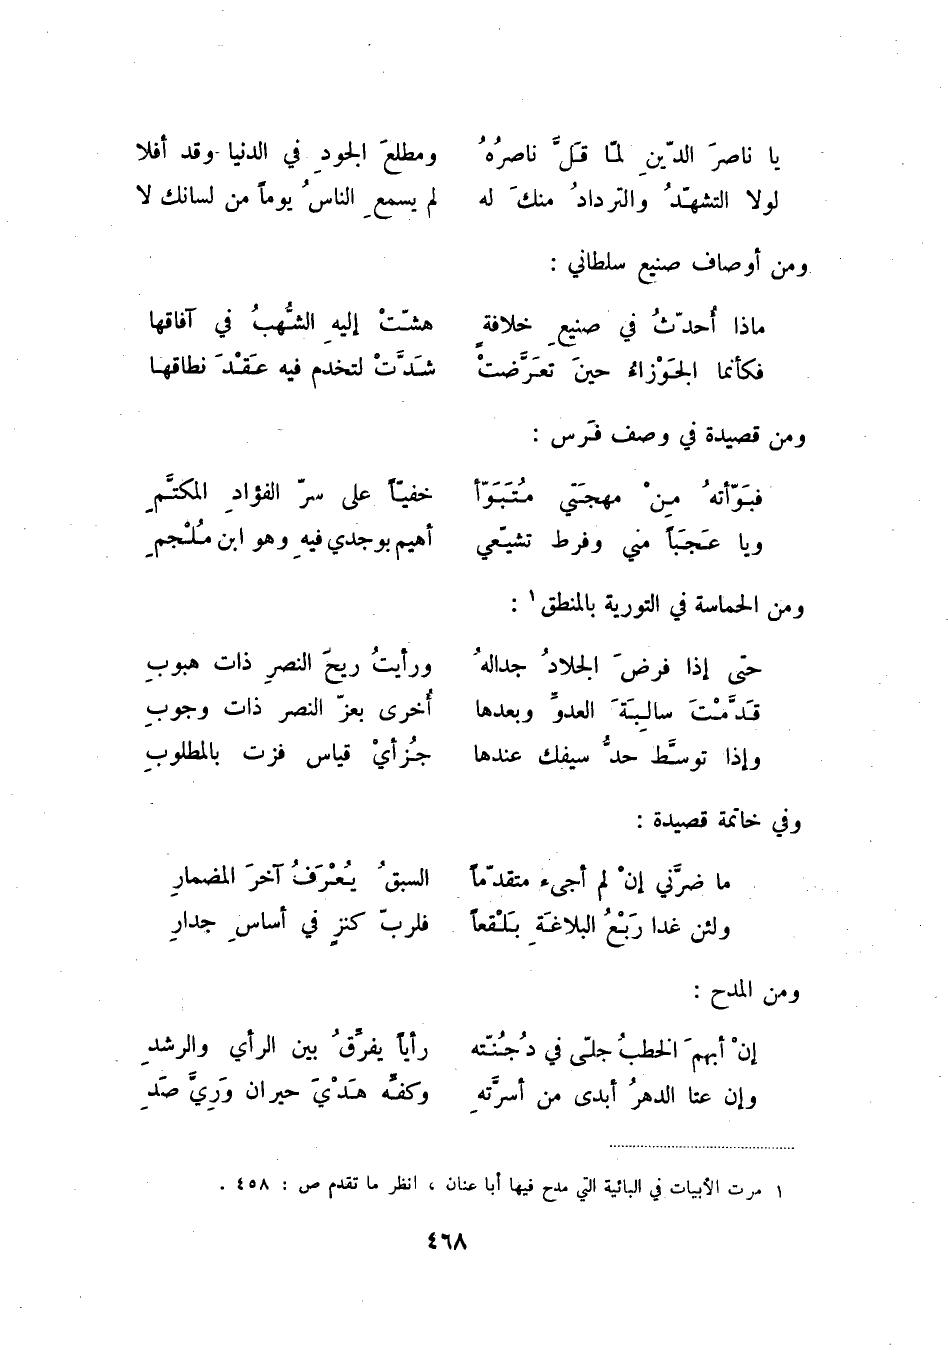 يا ناصرَ الدّينِ لمّا قلَّ ناصرُهُ ومطلعَ الجودِ في الدنيا وقد أفلا
لولا التشهّدُ والتردادُ منكَ له لم يسمعِ الناسُ يوماً من لسانك لا
ومن أوصاف صنيع سلطاني :
ماذا أُحدّثُ في صنيعِ خلافةٍ هشّتْ إليهِ الشُّهبُ في آفاقها
فكأنما الجَوْزاءُ حينَ تعرَّضتْ شدَّتْ لتخدم فيه عَقْدَ نطاقها
ومن قصيدة في وصف فَرس :
فبَوّأتهُ مِنْ مهجَتي مُتَبَوّأ خفيّاً على سرّ الفؤادِ المكتَّمِ
ويا عَجَباً مني وفرط تشيّعي أهيم بوجدي فيهِ وهو ابن مُلْجمِ
ومن الحماسة في التورية بالمنطق ١ :
حتّى إذا فرضَ الجلادُ جدالهُ ورأيتُ ريحَ النصرِ ذات هبوبِ
قَدَّمْتَ سالِبَةَ العدوِّ وبعدها أُخرى بعزّ النصر ذات وجوبِ
وإذا توسَّط حدُّ سيفك عندها جُزأيْ قياس فزت بالمطلوبِ
وفي خاتمة قصيدة :
ما ضرَّني إنْ لم أجىء متقدّماً السبقُ يُعْرَفُ آخرَ المضمارِ
ولئن غدا رَبْعُ البلاغةِ بَلْقعاً فلربّ كنزٍ في أساسِ جدارِ
ومن المدح :
إنْ أبهمَ الخطبُ جلّى في دُجُنّته رأياً يفرّقُ بين الرأي والرشدِ
وإن عتا الدهرُ أبدى من أسرَّتهِ وكفِّه هَدْيَ حيران وَرِيَّ صَدِ
١ مرت الأبيات في البائية التي مدح فيها أبا عنان ، انظر ما تقدم ص : ٤٥٨ .
٤٦٨